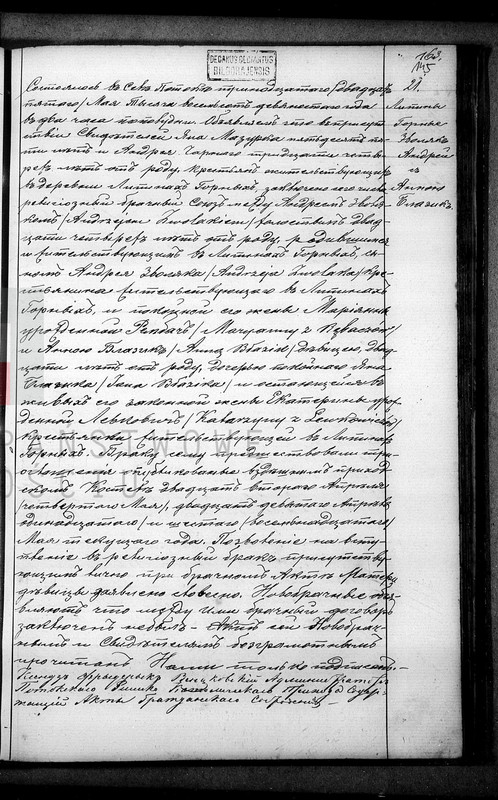 DECANUS DECANATUS
BILGORAJENSIS
163,
115
21.
Липины
Горные
Зволякъ
Андрей
и
Анною
Блазикъ.
Состоялось въ Селѣ Потокѣ тринадцатаго /двадцать
пятаго/ Мая тысяча восемьсотъ девяностаго года
въ два часа по полудни. Объявляемъ что въ присут
ствіи Свидѣтелей Яна Мазурка пятидесяти пя
ти лѣтъ и Андрея Чарного тридцати четы
рехъ лѣтъ отъ роду, крестьянъ жительствующихъ
въ деревни Липинахъ Горныхъ, заключено сего числа
религіозный брачный Союзъ между Андреемъ Зволя
комъ /Andrzejem Zwolakiem/ холостымъ двад
цати четырехъ лѣтъ отъ роду, родившимся
и жительствующимъ въ Липинахъ Горныхъ, сы
номъ Андрея Зволяка /Andrzeja Zwolaka/ кре
стьянина жительствующаго въ Липинахъ
Горныхъ, и покойной его жены Маріянны
урожденной /Maryanny z
и Анною Блазикъ /Anną Błazik/ дѣвицею, двад
цати лѣтъ отъ роду, дочерью покойнаго Яна
Блазика /Jana Błazika/ и остающейся въ
живыхъ его законной жены Екатерины урож
денной Левковичъ /Katarzyny z Lewkowiczów/
крестьянки жительствующей въ Липинахъ
Горныхъ. Браку сему предшествовали три
оглашенія опубликованныя въ здѣшнемъ приход
скомъ Костелѣ двадцать втораго Апрѣля
/четвертаго Мая/, двадцать девятаго Апрѣля
/одинадцатаго/ и шестаго /восемнадцатаго/
Мая текущаго года. Позволеніе на всту
пленіе въ религіозный бракъ присутству
ющимъ лично при брачномъ Актѣ Матери
дѣвицы заявлено словесно. Новобрачные объ
являютъ что между ими брачный договоръ
заключенъ не былъ. Актъ сей Новобрач
нымъ и Свидѣтелямъ безграмотнымъ
прочитанъ Нами только подписанъ.
Ксендзъ Фрыдерыкъ Администраторъ
Потокскаго Римско Католическаго Прихода Содер
жащій Акты Гражданскаго Состоянія